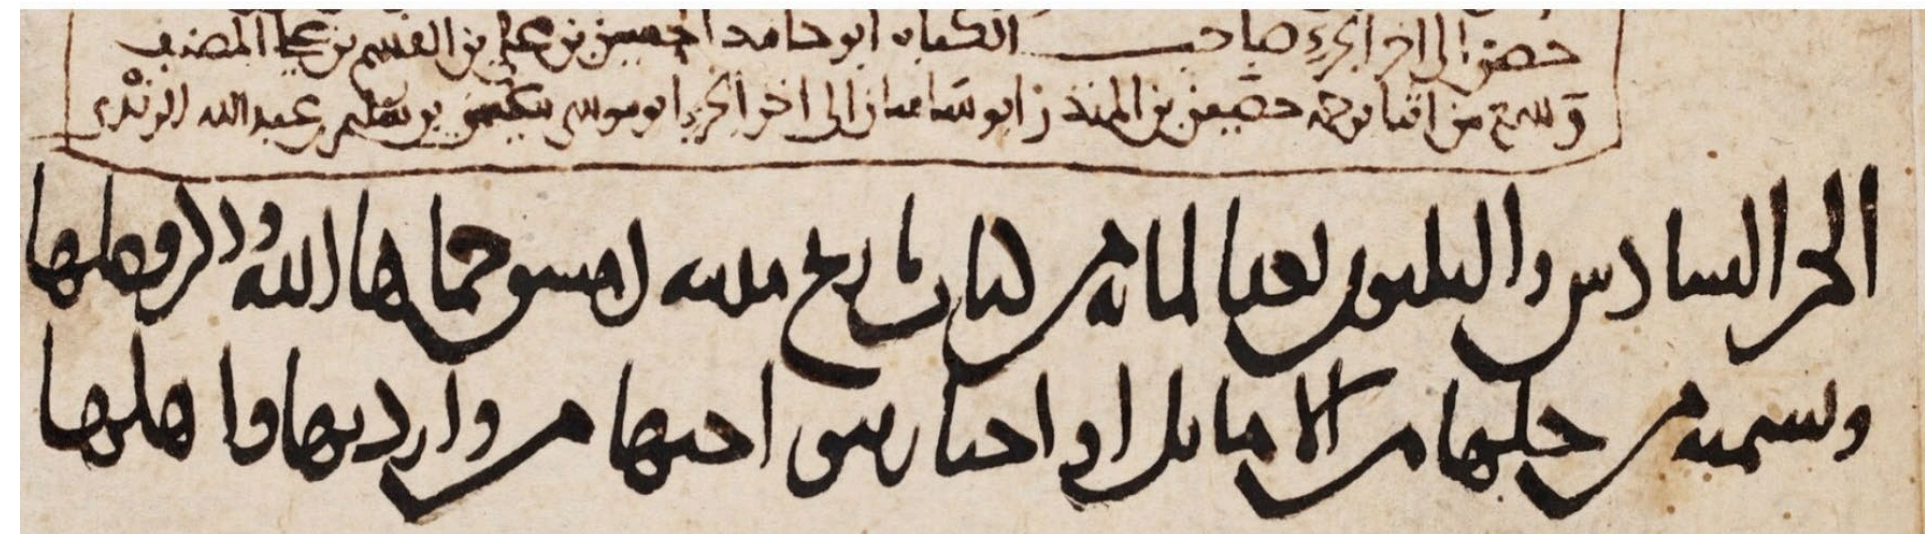 الى اخر الجزء صاحب الكتاب ابو حامد الحسين بن علي بن القسم بن علي المصنف
وسمع من اثنا ترجمة حضين بن المنذر ابو ساسان الى اخر الجزء ابو موسى عيسى بن عبد الله الرندي
الجز السادس والثلثون بعد المايه من كتاب تاريخ مدينه دمشق حماها الله وذكر فضلها
وتسميه من حلها من الاماثل او اجتاز بنواحيها من وارديها واهلها